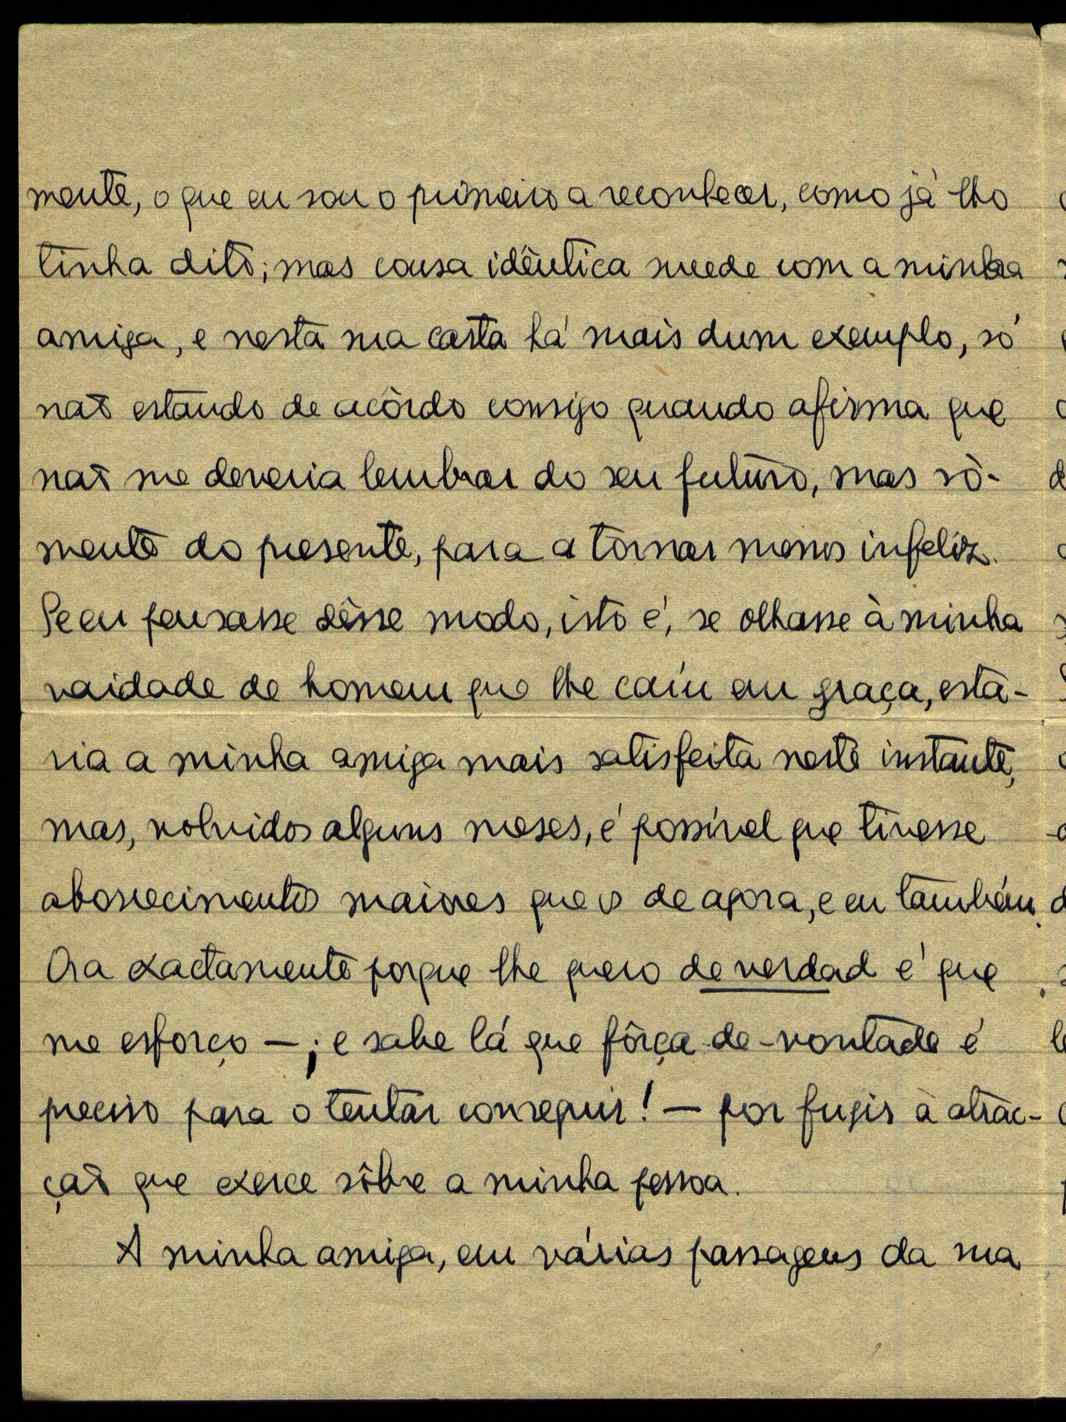 mente, o que eu sou o primeiro a reconhecer, como já lho
tinha dito; mas cousa idêntica sucede com a minha
amiga, e nesta sua carta há mais dum exemplo, só
não estando de acôrdo consigo quando afirma que
não me deveria lembrar do seu futuro, mas sò-
mente do presente, para a tornar menos infeliz.
Se eu pensasse dêsse modo, isto é, se olhasse à minha
vaidade de homem que lhe caíu em graça, esta-
ria a minha amiga mais satisfeita neste instante,
mas, volvidos alguns meses, é possível que tivesse
aborrecimentos maiores que o de agora, e eu também.
Ora exactamente porque lhe quero de verdad é que
me esforço —; e sabe lá que fôrça-de-vontade é
preciso para o tentar conseguir! — por fugir à atrac-
ção que exerce sôbre a minha pessoa.
A minha amiga, em várias passagens da sua